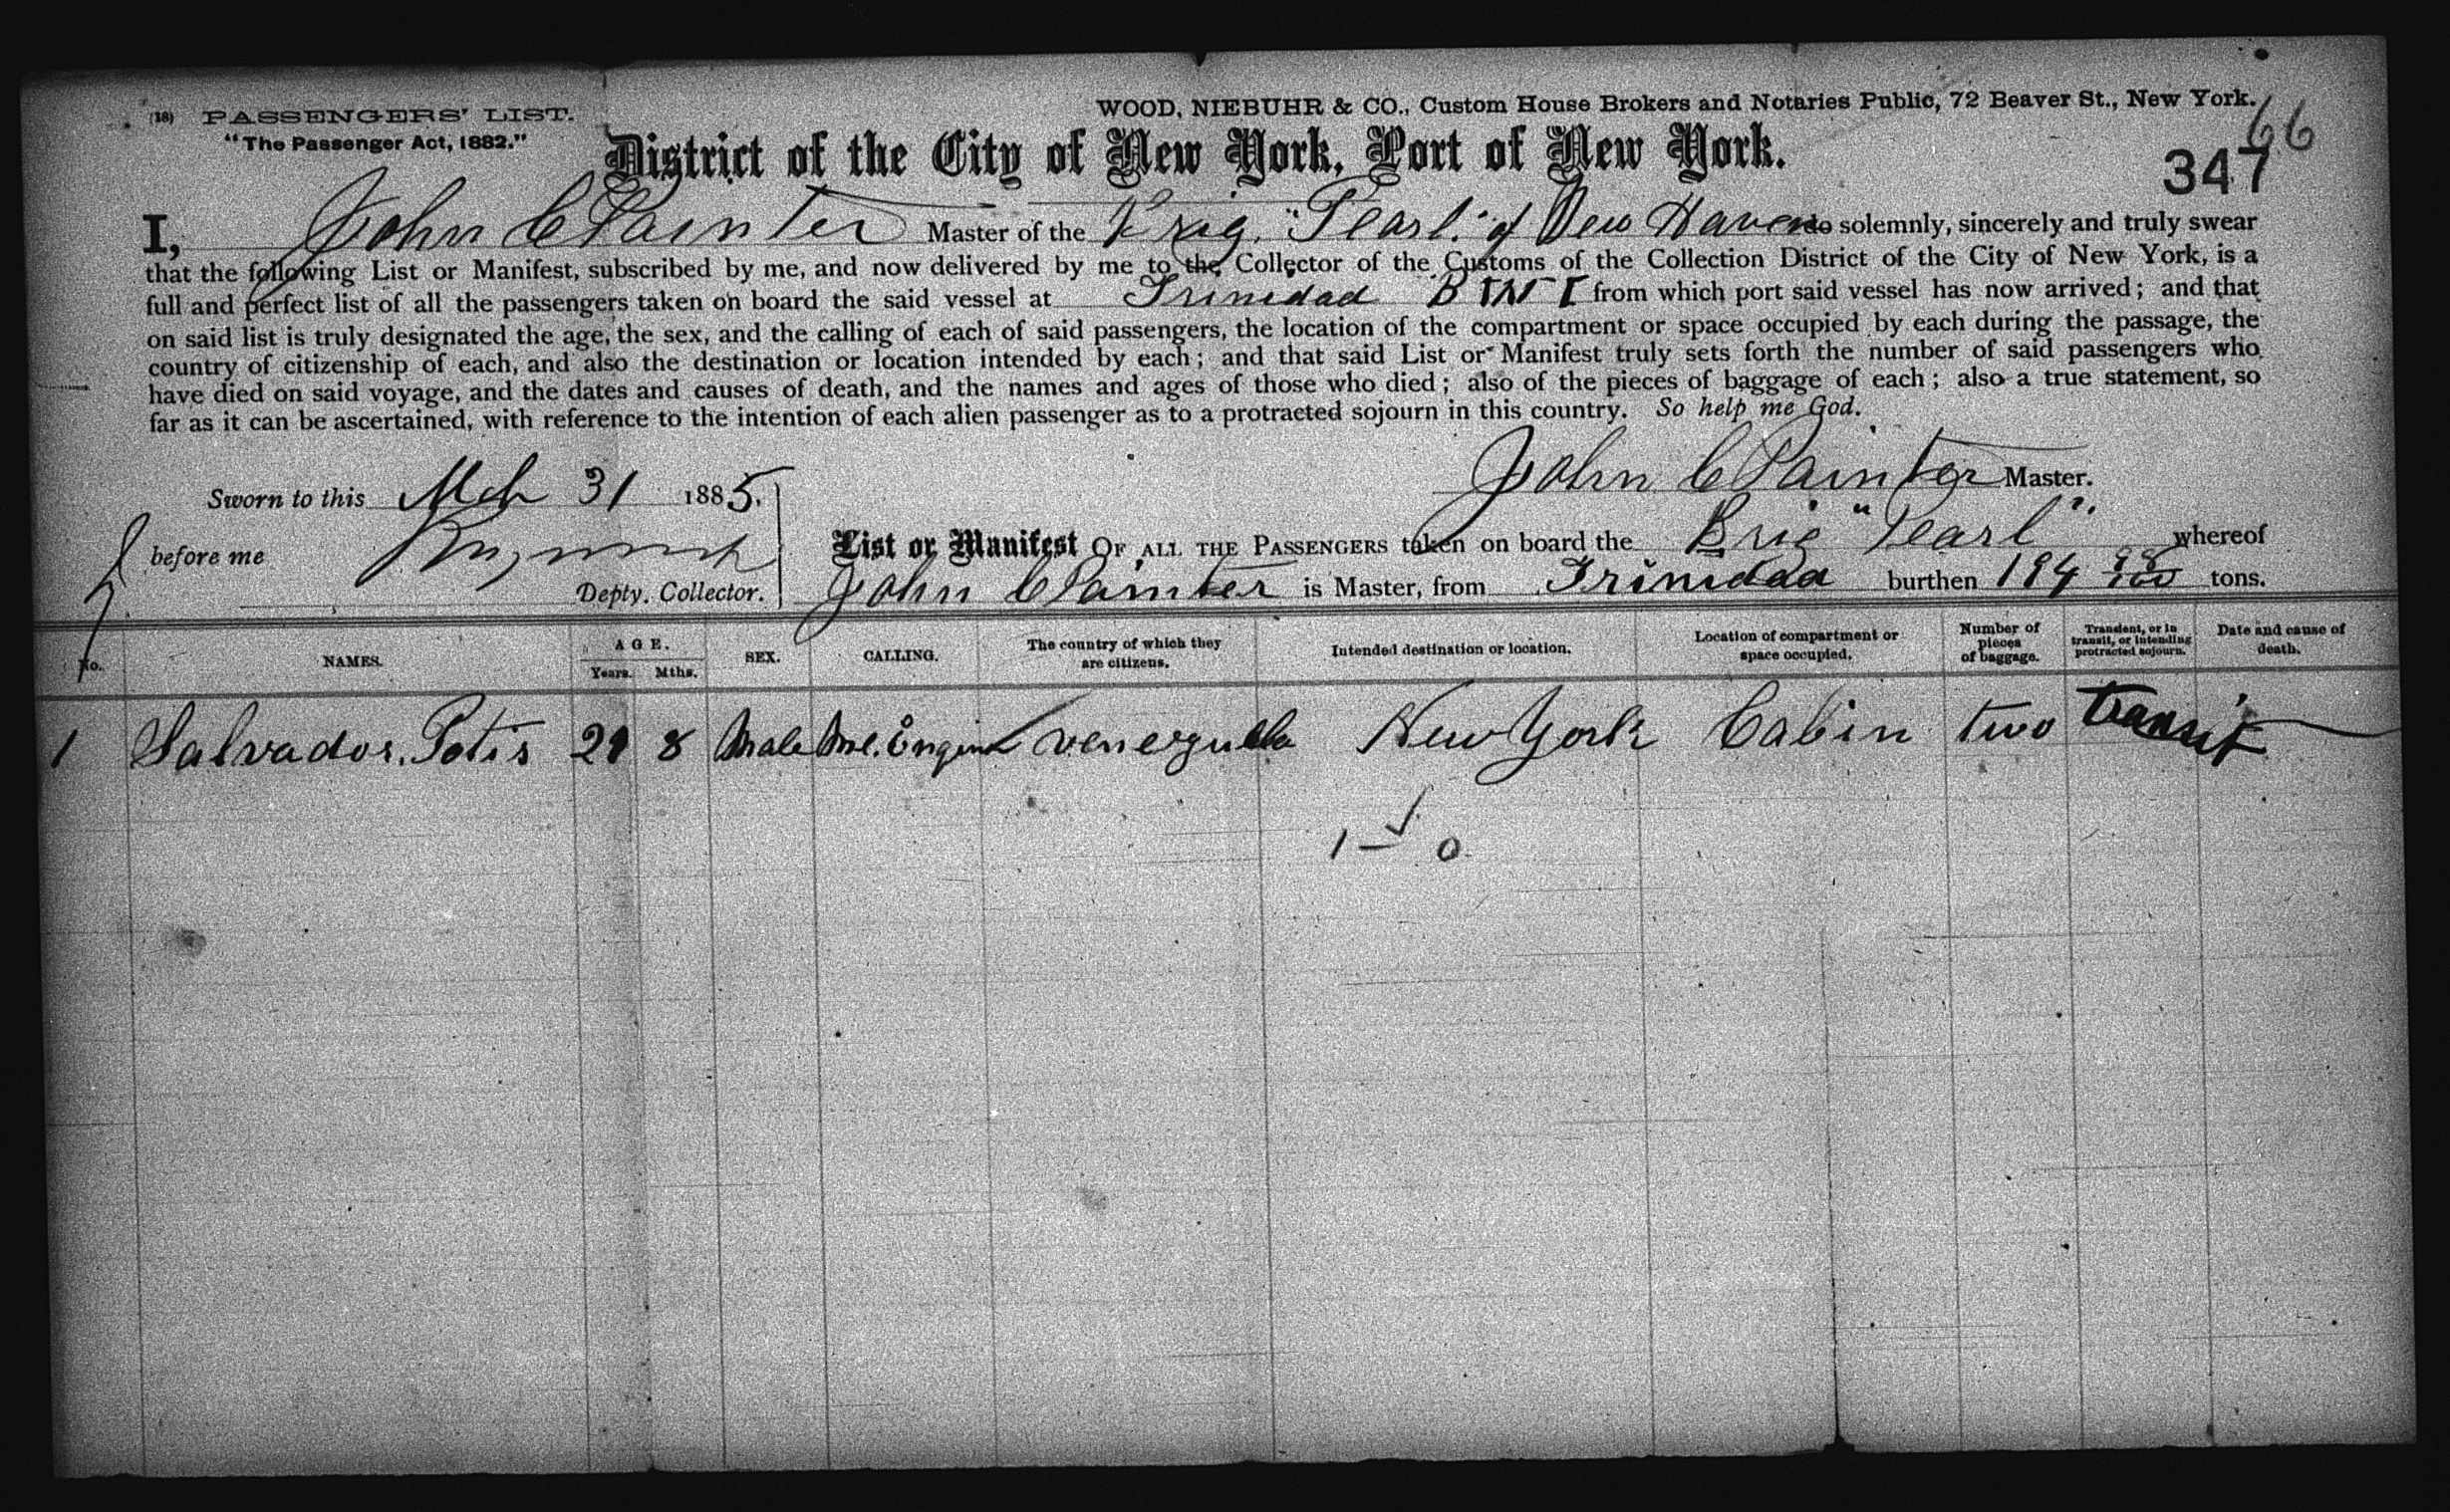 (18) PASSENGERS' LIST.
"The Passenger Act, 1882."
WOOD, NIEBUHR & CO., Custom House Brokers and Notaries Public, 72 Beaver St., New York.
66
District of the City of New York, Port of New York.
347
I, John C Painter Master of the Brig. "Pearl." of New Haven do solemnly, sincerely and truly swear
that the following List or Manifest, subscribed by me, and now delivered by me to the Collector of the Customs of the Collection District of the City of New York, is a
full and perfect list of all the passengers taken on board the said vessel at Trinidad B W I from which port said vessel has now arrived; and that
on said list is truly designated the age, the sex, and the calling of each of said passengers, the location of the compartment or space occupied by each during the passage, the
country of citizenship of each, and also the destination or location intended by each; and that said List or Manifest truly sets forth the number of said passengers who
have died on said voyage, and the dates and causes of death, and the names and ages of those who died; also of the pieces of baggage of each; also a true statement, so
far as it can be ascertained, with reference to the intention of each alien passenger as to a protracted sojourn in this country. So help me God.
John C Painter Master.
Sworn to this Mch 31 1885.
before me
Depty. Collector.
List or Manifest OF ALL THE PASSENGERS taken on board the Brig "Pearl". whereof
John C Painter is Master, from Trinidad burthen 194 98/100 tons.
No. NAMES. AGE. Years. Mths. SEX. CALLING. The country of which they are citizens. Intended destination or location. Location of compartment or space occupied. Number of pieces of baggage. Transient, or in transit, or intending protracted sojourn. Date and cause of death.
1 Salvador. Potis 29 8 Male Me. Engin venezuella New York Cabin two transit
1 — 0